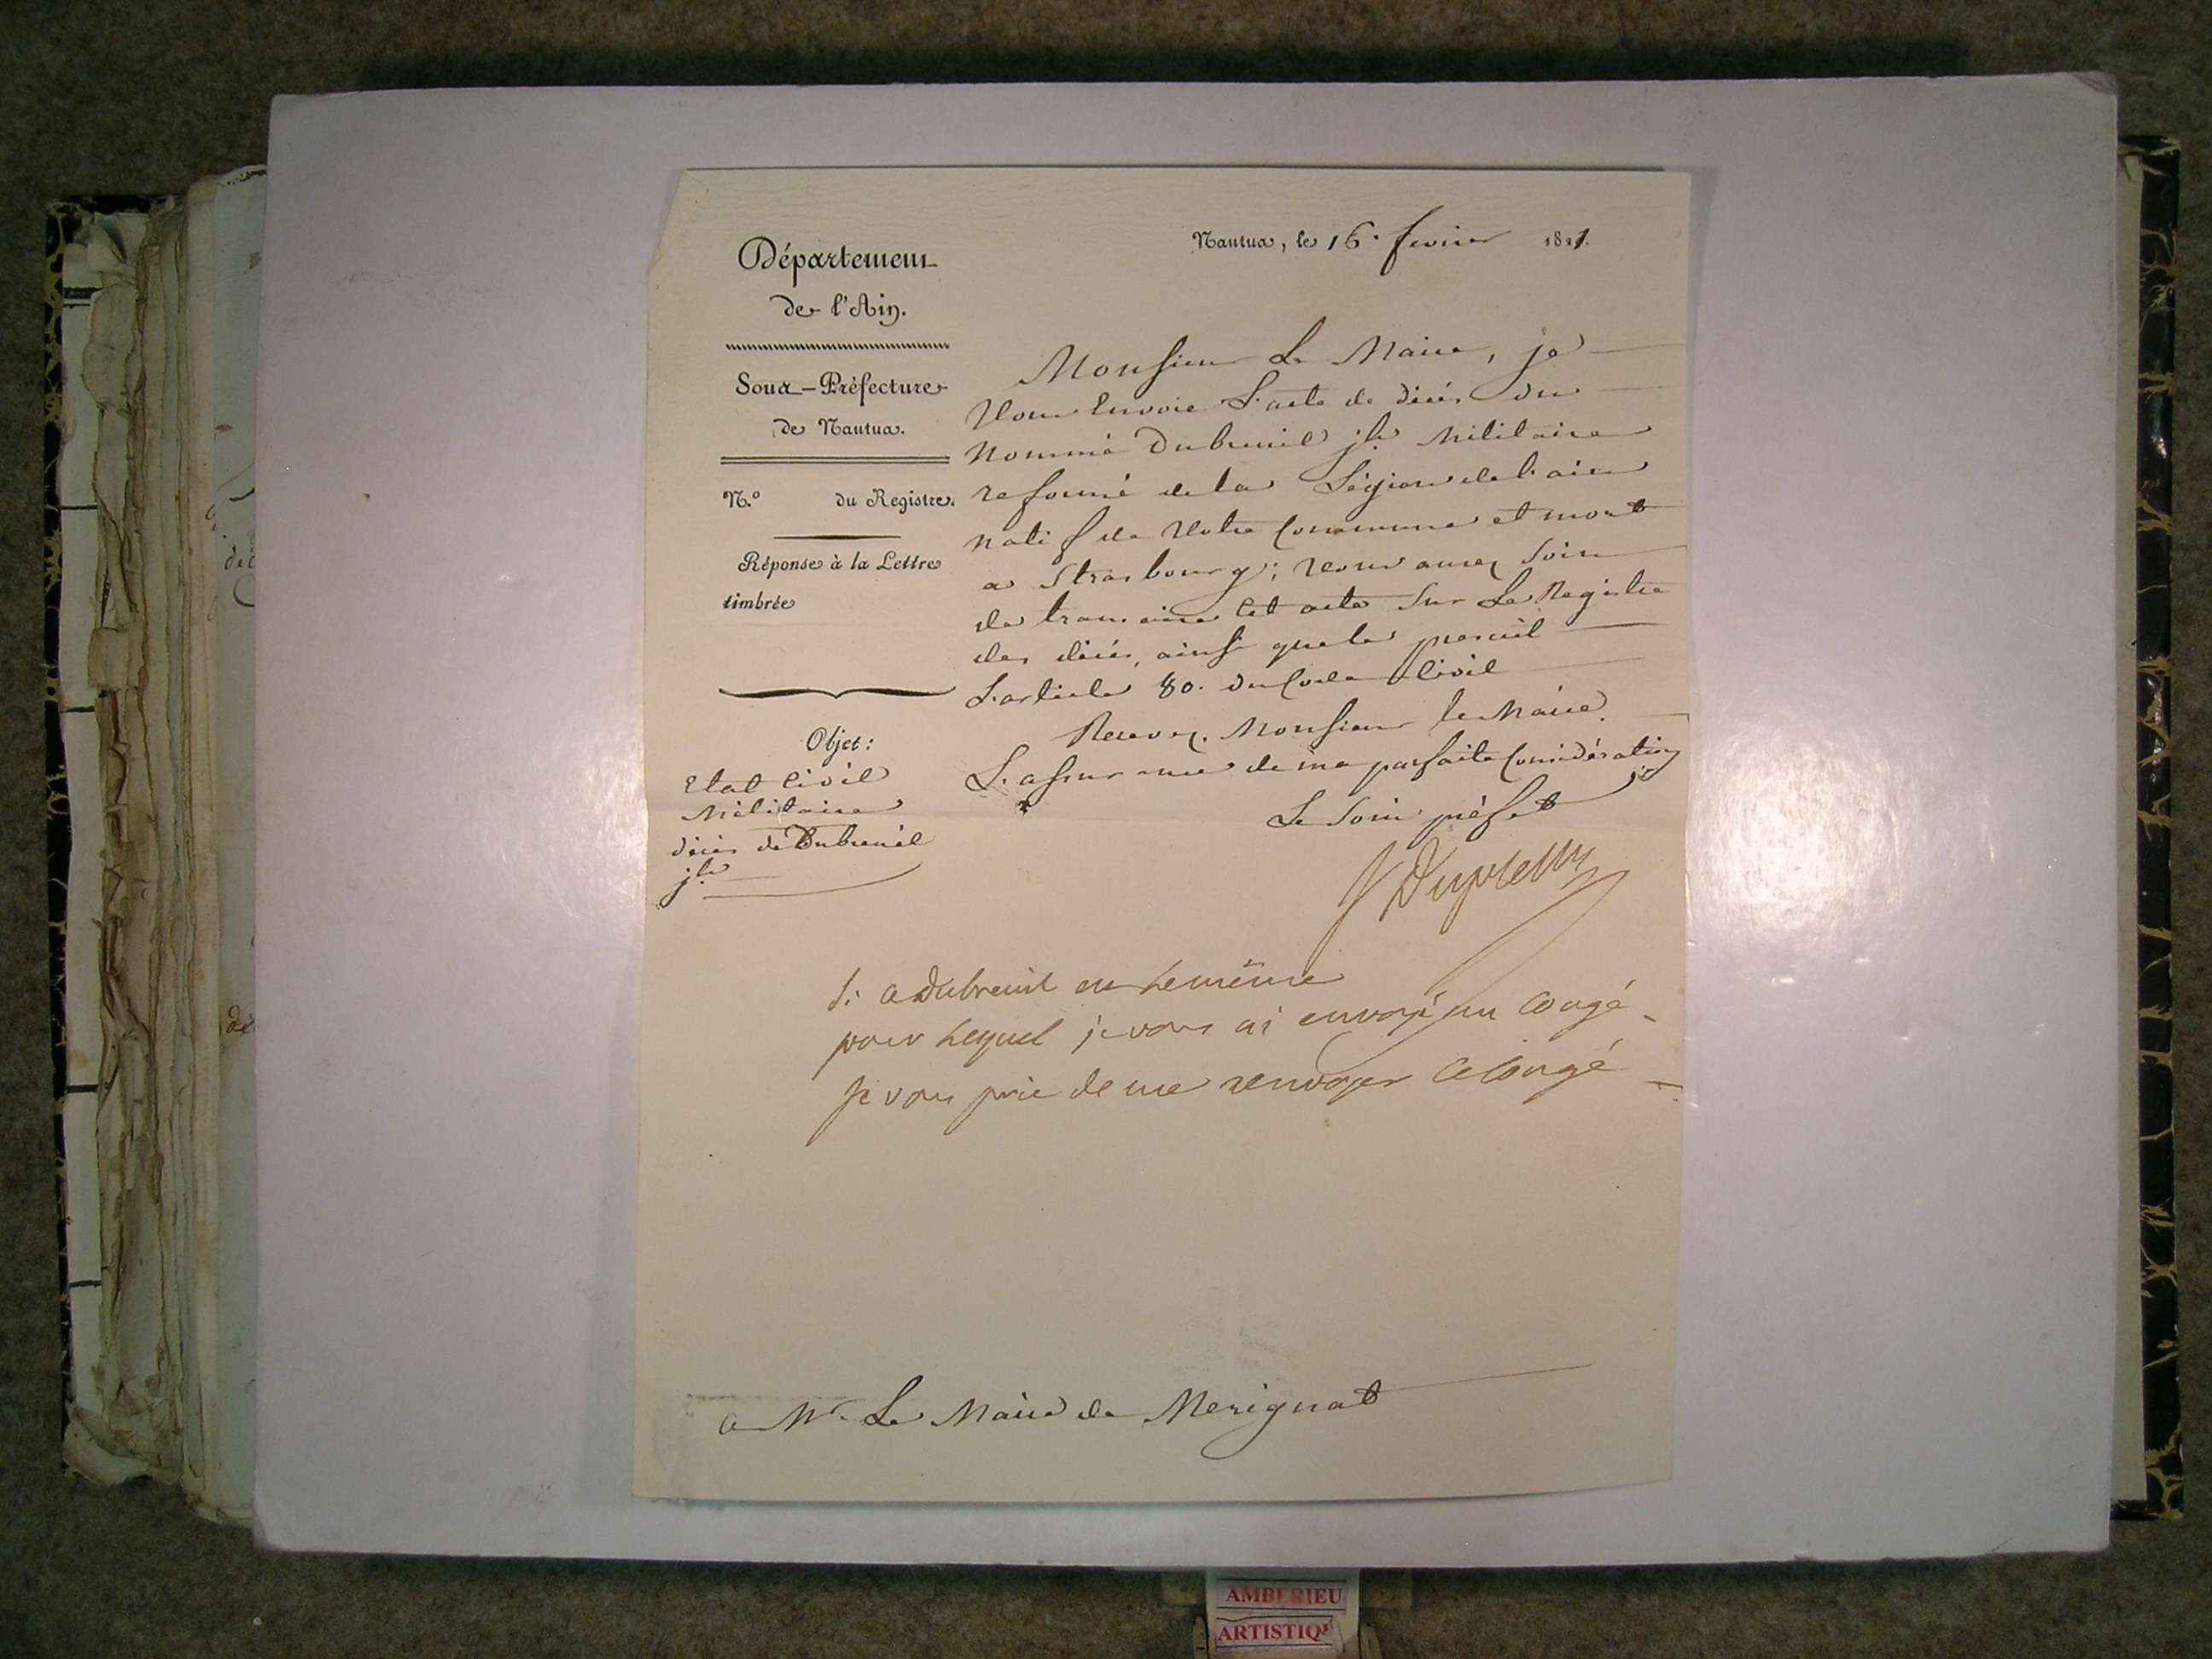 Département
de l'Ain.
Sous-Préfecture
de Nantua.
N.º du Registre.
Réponse à la Lettre
timbrée
Objet :
Etat Civil
Militaire
décès de Dubreuil
j.h
Nantua, le 16. fevrier 1821.
Monsieur Le Maire, je
Vous Envoie L'acte de décès du
nommé Dubreuil j.h Militaire
reformé de la Légion de l'ain
natif de Votre Commune et mort
a Strasbourg ; vous aurez soin
de transcrire Cet acte sur Le Registre
des décès, ainsi que le prescrit
L'article 80. du Code Civil
Recevez, Monsieur le Maire,
L'assurance de ma parfaite Considération
Le Sous préfet
Si ce Dubreuil est le même
pour lequel je vous ai envoyé un congé
Je vous prie de me renvoyer ce congé
a Mr. Le Maire de Merignat
AMBERIEU
ARTISTIQ